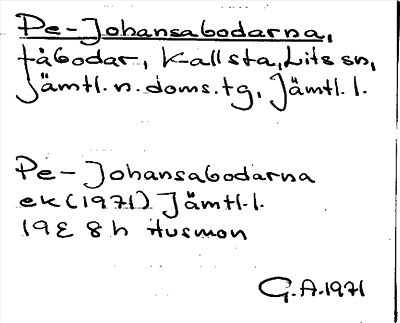 Pe-Johansabodarna,
fäbodar, Kallsta, Lits sn,
Jämtl. n. doms. tg, Jämtl. l.
Pe-Johansabodarna
ek (1971) Jämtl. l.
19E 8h Husmon
G. A. 1971